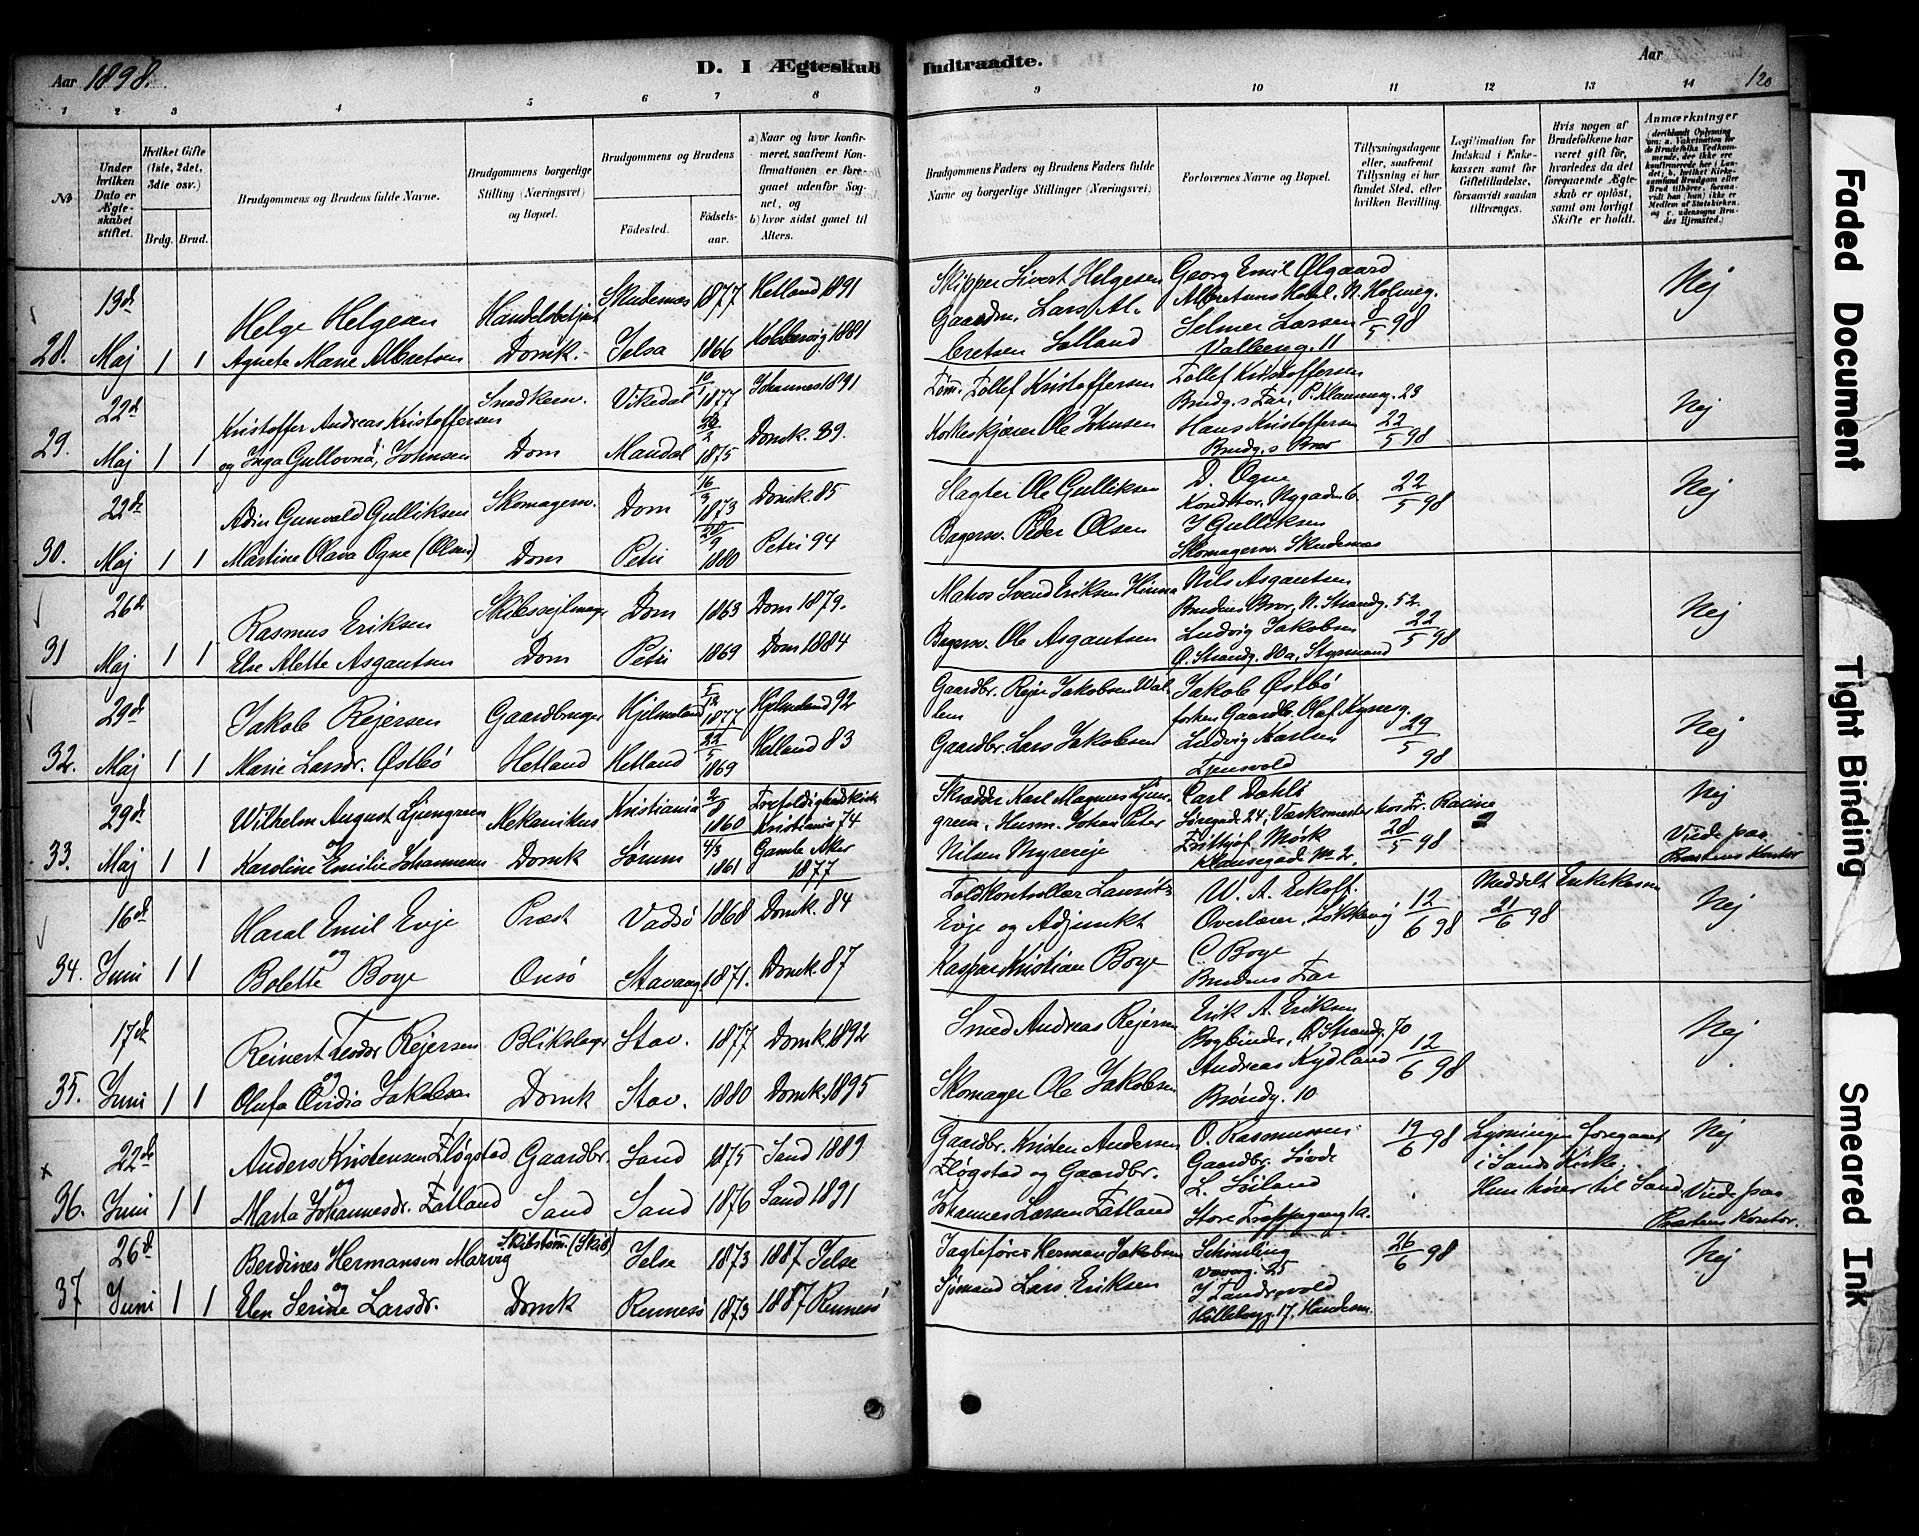 Aar 1898.
D. I Ægteskab Indtraadte.
Aar
120
1 2 3 4 5 6 7 8 9 10 11 12 13 14
No
Under hvilken Dato er Ægteskabet stiftet.
Hvilket Gifte (1ste, 2det, 3dte osv.)
Brdg. Brud.
Brudgommens og Brudens fulde Navne.
Brudgommens borgerlige Stilling (Næringsvei) og Bopæl.
Brudgommens og Brudens
Födested.
Födselsaar.
a) Naar og hvor konfirmeret, saafremt Konfirmationen er foregaaet udenfor Sognet, og
b) hvor sidst gaaet til Alters.
Brudgommens Faders og Brudens Faders fulde Navne og borgerlige Stillinger (Næringsvei)
Forlovernes Navne og Bopæl.
Tillysningsdagene eller, saafremt Tillysning ei har fundet Sted, efter hvilken Bevilling.
Legitimation for Indskud i Enkekassen samt for Giftetilladelse, forsaavidt saadan tiltrænges.
Hvis nogen af Brudefolkene har været gift för, hvorledes da det foregaaende Ægteskab er oplöst, samt om lovligt Skifte er holdt.
Anmærkninger
28. 13de Maj 1 1
Helge Helgesen Handelsbetjent Skudenes 1877 Hetland 1891
Agnete Marie Albretsen Domk. Jelsa 1866 1881
Skipper Sivert Helgesen
Gaardm. Lars Albretsen
Georg Emil Ølgaard
Selmer Larsen
Valbeng. 11
8/5 98
Nej
29. 22de Maj 1 1
Kristoffer Andreas Kristoffersen Snedkersv. Vikedal 10/1 1877 Johannes 1891
og Inga Gullovna Johnsen Dom Mandal 1875 Domk. 89.
Tollef Kristoffersen
Ole Johnsen
Tollef Kristoffersen
Brudg.s Far, P. Klauseng. 23
Hans Kristoffersen
Brudg.s Bror
22/5 98
Nej
30. 22de Maj 1 1
Adin Gunvald Gulliksen Skomagersv. Dom 16/3 1873 Domk. 85
Martine Olava Ogne (Olsen) Dom Petri 1880 Petri 94
Slagter Ole Gulliksen
Bagersv. Peder Olsen
D. Ogne
Konditor, Nygaden 6
J Gulliksen
Skomagersv. Skudenes
22/5 98
Nej
31 26de Maj 1 1
Rasmus Eriksen Skibssejlmager Dom 1863 Dom 1879.
Else Alette Asgautsen Dom Petri 1869 Dom 1884
Matros Svend Eriksen Hinna
Bagersv. Ole Asgautsen
Nils Asgautsen
Brudens Bror, N. Strandg. 52.
Ludvig Jakobsen
Ø. Strandg. 80a, Styrmand
22/5 98
Nej
32. 29de Maj 1 1
Jakob Rejersen Gaardbruger Hjelmeland 5/12 1877 Hjelmeland 92
Marie Larsdr. Østbø Hetland Hetland 22/5 1869 Hetland 83
Gaardbr. Rejer Jakobsen
Gaardbr. Lars Jakobsen
Jakob Østbø
Ludvig Karlsen
Tjensvold
29/5 98
Nej
33. 29de Maj 1 1
Wilhelm August Ljungreen Mekanikus Kristiania 2/8 1860 Trefoldighedskirk Kristiania 74
og
Karoline Emilie Johannesen Domk Sørum 4/3 1861 Gamle Aker 1877
Skrædder Karl Magnus Ljungreen, Husm. Johan Peter
Nilsen Myrereje
Carl Dahlø
Løvegade 24, Værkmester hos Fr. Racine
Frithjof Mørk
Klausegade No 2.
28/5 98
Nej
Viede paa
Præstens Kontor
34. 16de Juni 1 1
Haral Emil Evje Præst Vadsø 1868 Domk. 84
og
Bolette Boye Onsø Stavang. 1871. Domk. 87
Toldkontrollør Laurits
Evje og Adjunkt
Kaspar Kristian Boye
W. A. Eckoff.
Overlærer, Løkkevej
C Boye
Brudens Far
12/6 98
Meddelt Enkekassen
21/6 98
Nej
35. 17de Juni 1 1
Reinert Teodor Rejersen Blikslager Stav. 1877 Domk. 1892
og
Olufa Ovidia Jakobsen Domk Stav. 1880 Domk. 1895
Smed Andreas Rejersen
Skomager Ole Jakobsen
Erik A. Eriksen
Bogbinder, Ø. Strandg. 70
Andreas Kydland
Brøndg. 10
12/6 98
Nej
x 36. 22de Juni 1 1
Anders Kristensen Fløgstad Gaardbr. Sand 1875 Sand 1889
og
Marta Johannesdr. Fatland Sand Sand 1876 Sand 1891
Gaardbr. Kristen Andersen
Fløgstad og Gaardbr.
Johannes Larsen Fatland
O. Rasmussen
Gaardbr. Søvde
L. Søiland
Store Trappegang 1a.
19/6 98
Lysningen foregaaet
i Sands Kirke.
Hun hører til Sand
Nej
Viede paa
Præstens Kontor.
37 26de Juni 1 1
Berdines Hermansen Marvig Skibstømm. (Skib) Jelse 1873 1887 Jelse
og
Elen Serine Larsdr. Domk Rennesø 1873 1887 Rennesø
Jagtefører Herman Jakobsen
Sjømand Lars Eriksen
Schimling
25
J Tandrevold
17, Handelsm.
26/6 98
Nej
Faded Document
Tight Binding
Smeared Ink